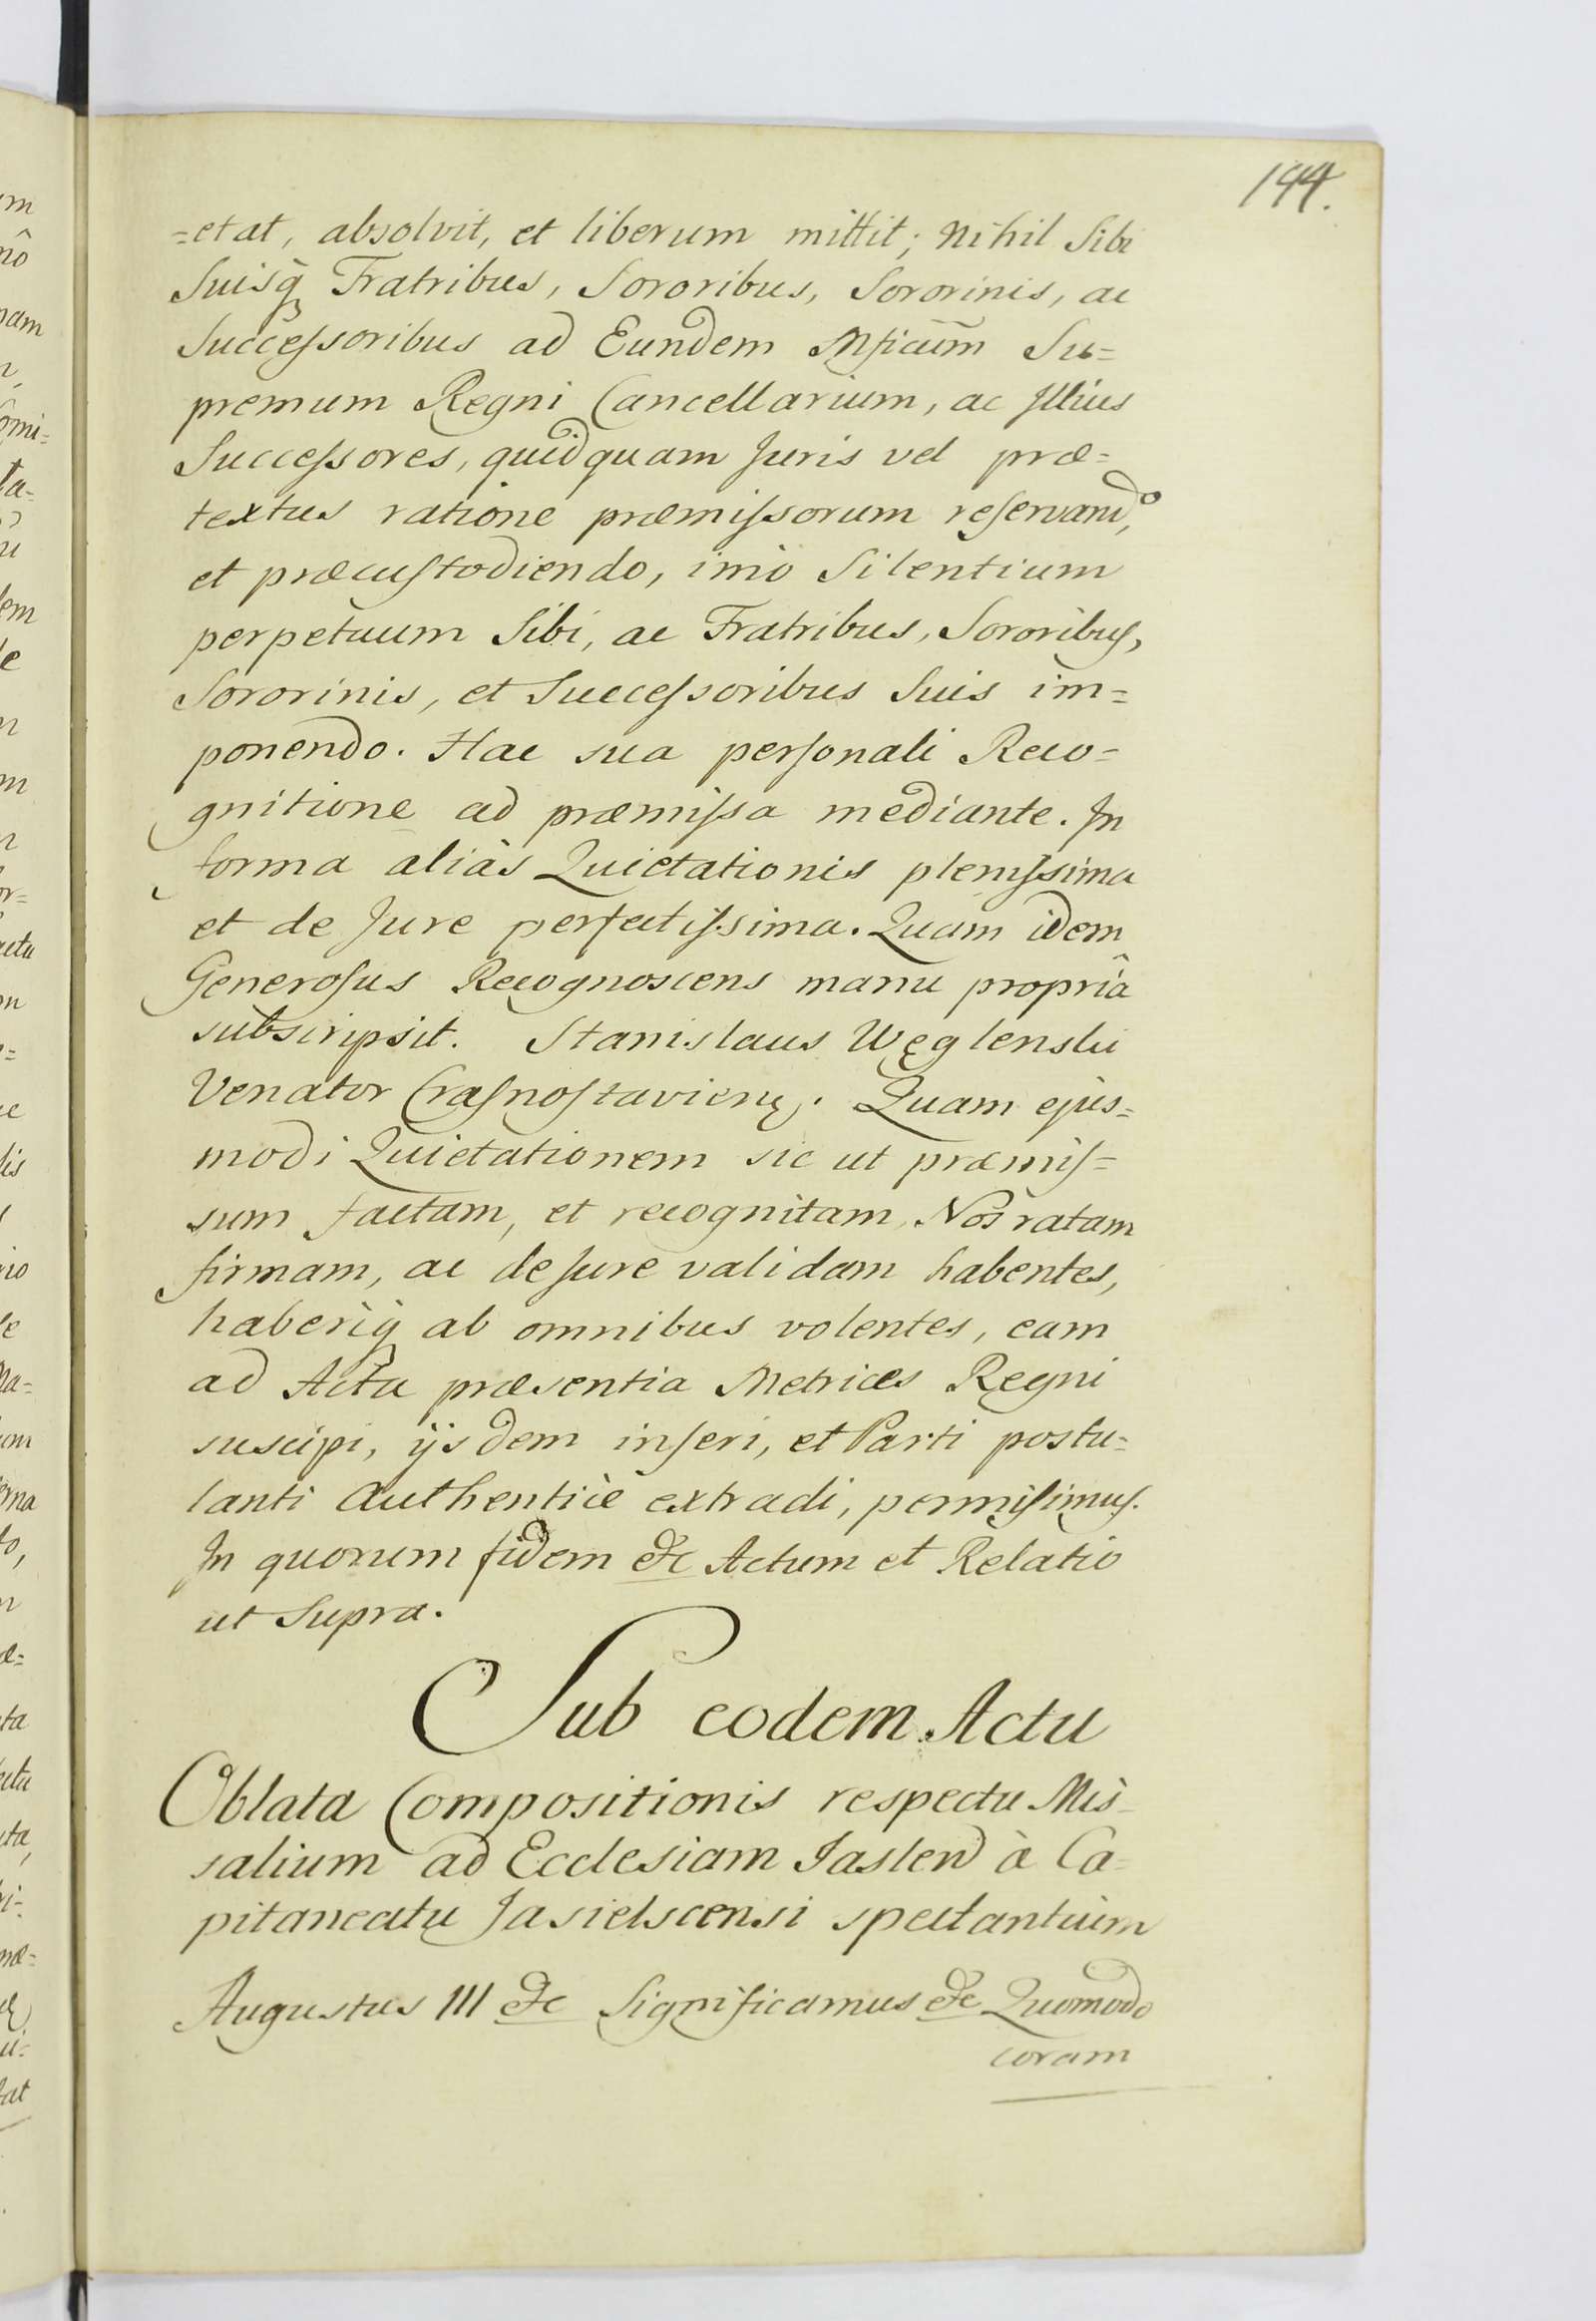 144.
=etat, absolvit, et liberum mittit; Nihil Sibi
Suisq̀ Fratribus, Sororibus, Sororinis, ac
Successoribus ad Eundem Mficum̄ Su=
premum Regni Cancellarium, ac Illius
Successores, quidquam Juris vel præ=
textus ratione præmissorum reservando,
et præcustodiendo, imò Silentium
perpetuum Sibi, ac Fratribus, Sororibus,
Sororinis, et Successoribus Suis im=
ponendo. Hac sua personali Reco=
gnitione ad præmissa mediante. In
forma aliàs Quietationis plenissima
et de Jure perfectissima. Quam idem
Generosus Recognoscens manu propriâ
subscripsit. Stanislaus Węglenski
Venator Crasnostaviens. Quam ejus=
modi Quietationem sic ut præmis=
sum factam, et recognitam, Nos ratam
firmam, ac de Jure validam habentes,
haberiq̀ ab omnibus volentes, eam
ad Acta præsentia Metrices Regni
suscipi, ijsdem inseri, et Parti postu=
lanti Authenticè extradi, permisimus.
In quorum fidem &c Actum et Relatio
ut Supra.
Sub eodem Actu
Oblata Compositionis respectu Mis-
salium ad Ecclesiam Jaslen à Ca=
pitaneatu Jasielscensi spectantium
Augustus III &c Significamus &c Quomodo
coram